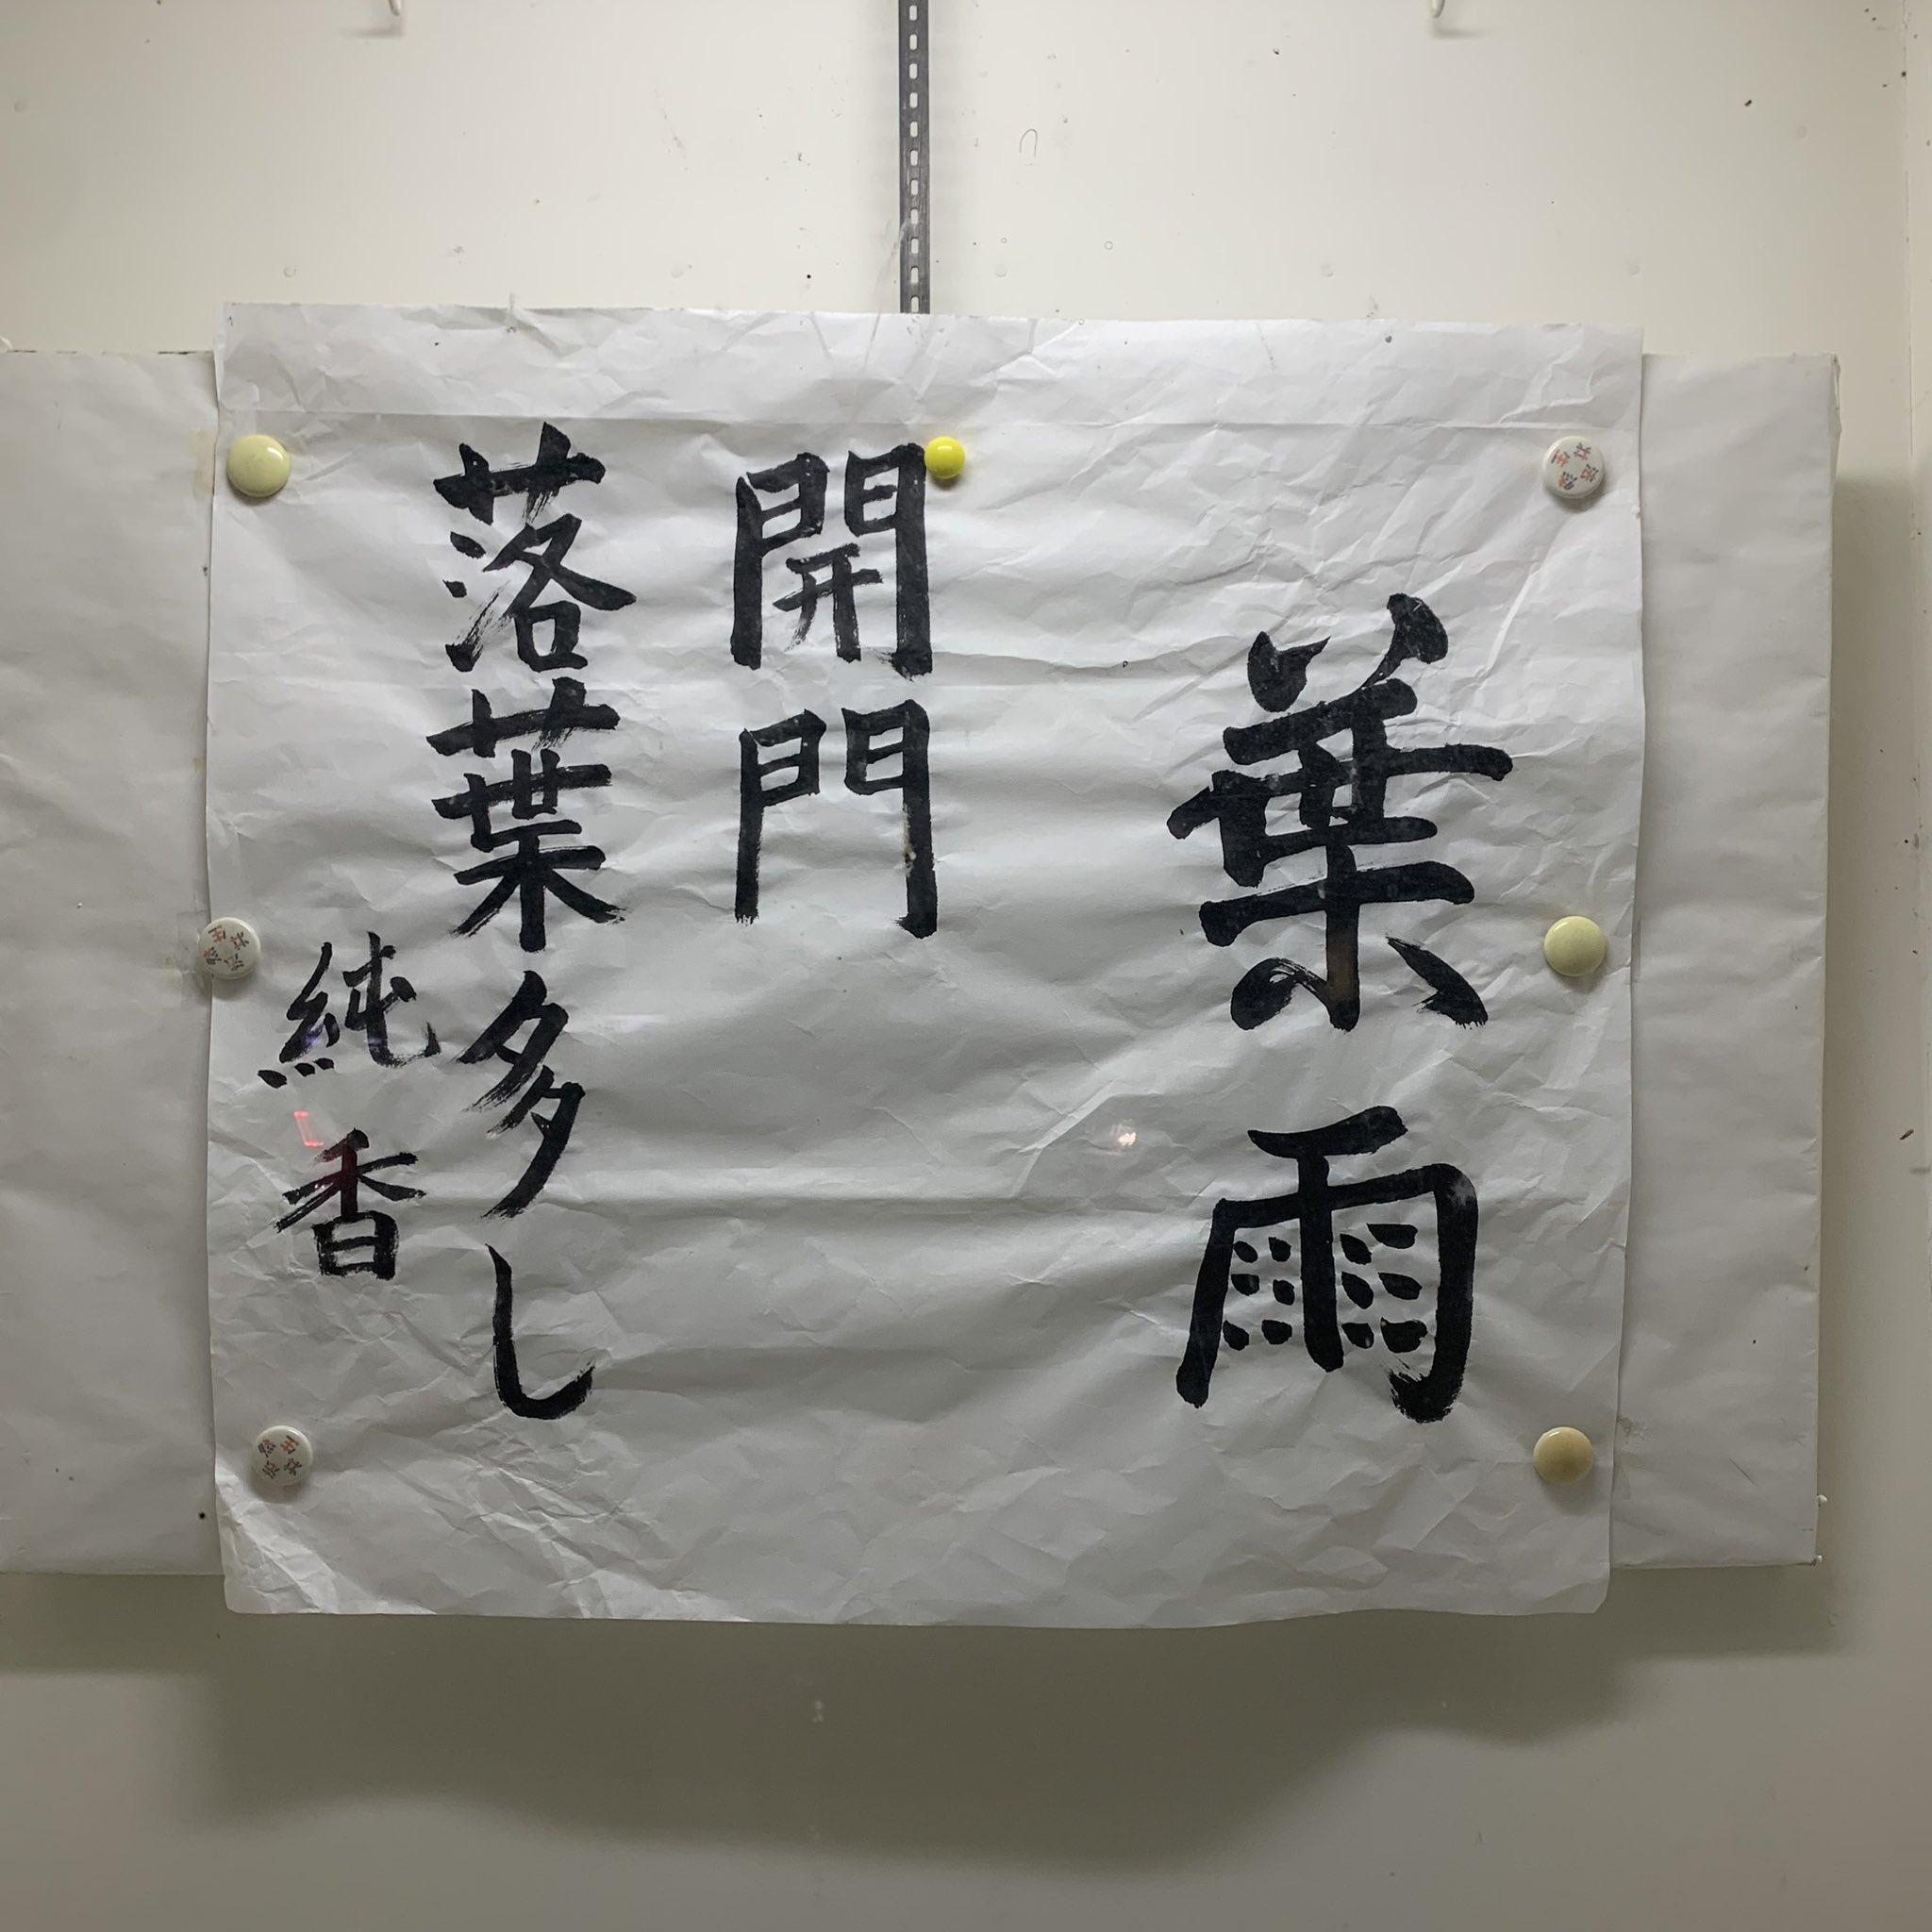 葉雨
開門
落葉多し
純香